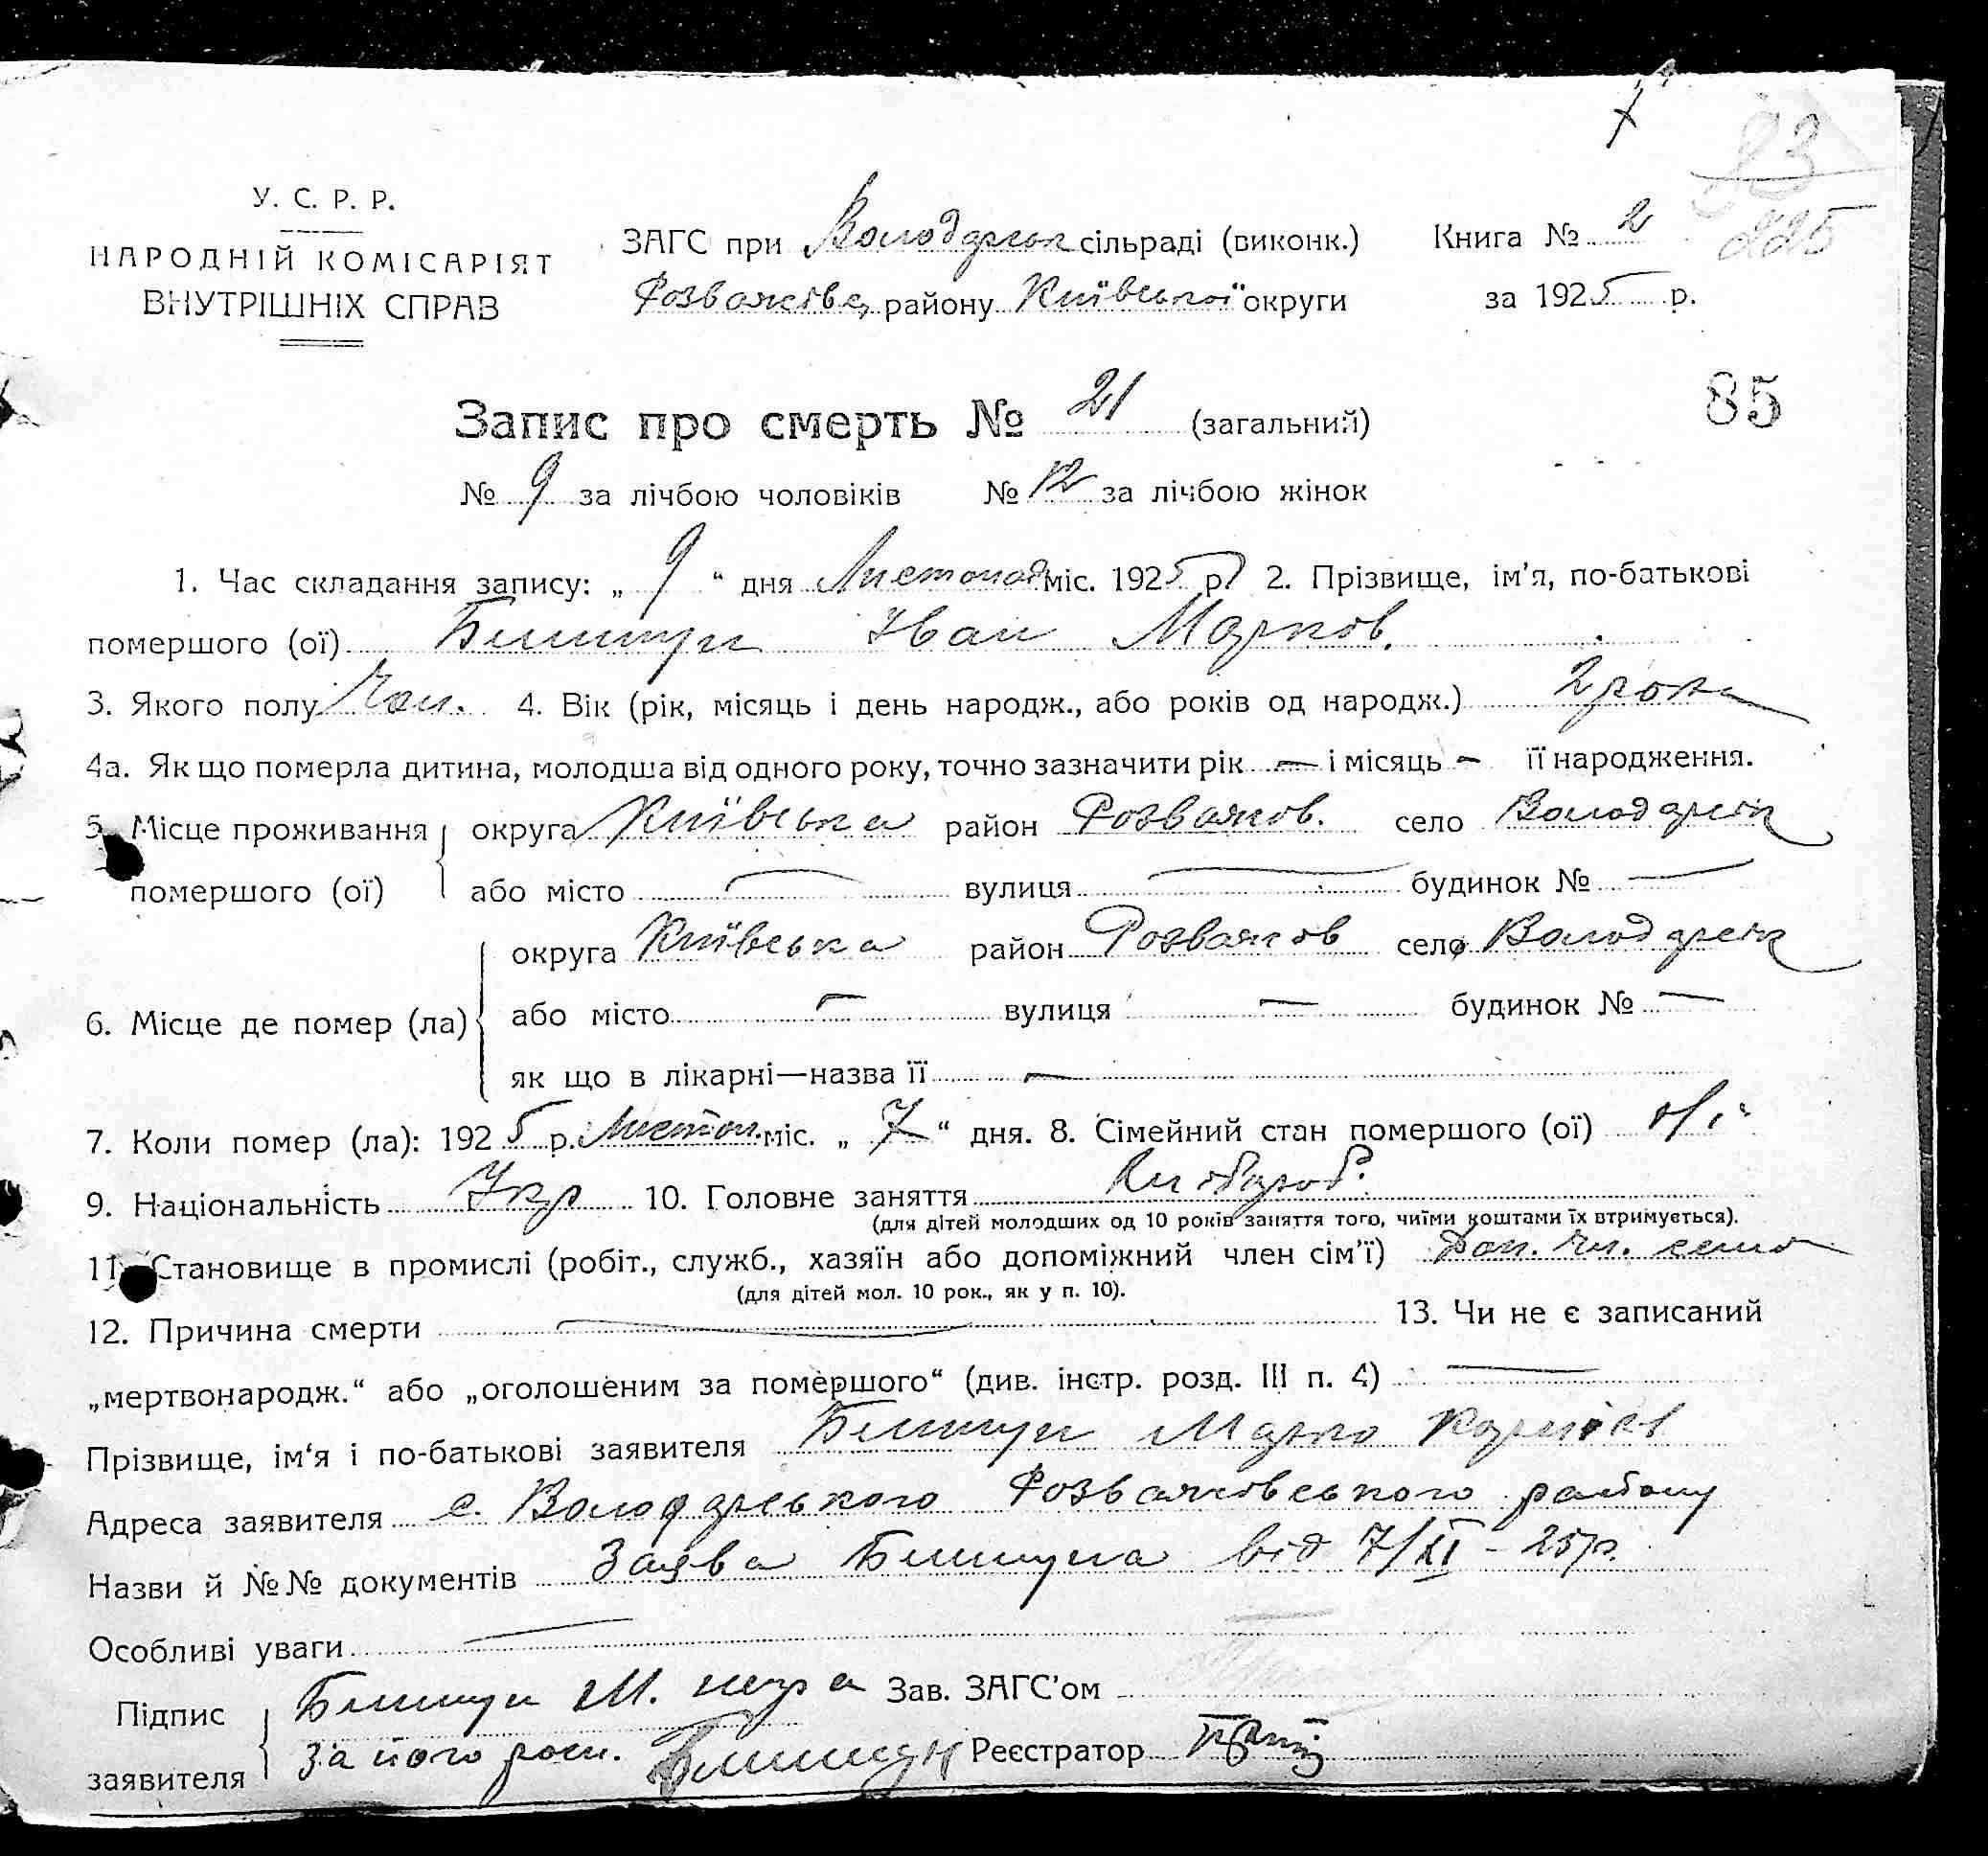 83
225
У. С. Р. Р.
НАРОДНІЙ КОМІСАРІЯТ
ВНУТРІШНІХ СПРАВ
ЗАГС при Володарськ сільраді (виконк.)
Розважівс району Київської округи
Книга № 2
за 1925 р.
85
Запис про смерть № 21 (загальний)
№ 9 за лічбою чоловіків № 12 за лічбою жінок
1. Час складання запису: „ 9 “ дня Листопад міс. 1925 р. 2. Прізвище, ім’я, по-батькові
помершого (ої) Іван Марков.
3. Якого полу Чол. 4. Вік (рік, місяць і день народж., або років од народж.) 2 роки
4а. Як що померла дитина, молодша від одного року, точно зазначити рік — і місяць — її народження.
5. Місце проживання округа Київська район Розважов. село Володарськ
помершого (ої) або місто — вулиця — будинок № —
округа Київська район Розважов село Володарськ
6. Місце де помер (ла) або місто — вулиця — будинок № —
як що в лікарні—назва її —
7. Коли помер (ла): 1925 р. Листоп. міс. „ 7 “ дня. 8. Сімейний стан помершого (ої)
9. Національність Укр 10. Головне заняття Хлібороб.
(для дітей молодших од 10 років заняття того, чиїми коштами їх втримується).
11. Становище в промислі (робіт., служб., хазяїн або допоміжний член сім’ї) Доп. чл.
(для дітей мол. 10 рок., як у п. 10).
12. Причина смерти — 13. Чи не є записаний
„мертвонародж.“ або „оголошеним за помершого“ (див. інстр. розд. III п. 4) —
Прізвище, ім‘я і по-батькові заявителя Марко
Адреса заявителя с. Володарського Розважовського району
Назви й №№ документів Заява від 7/XI - 25 р.
Особливі уваги —
Підпис М. Зав. ЗАГС’ом
заявителя за його Реєстратор